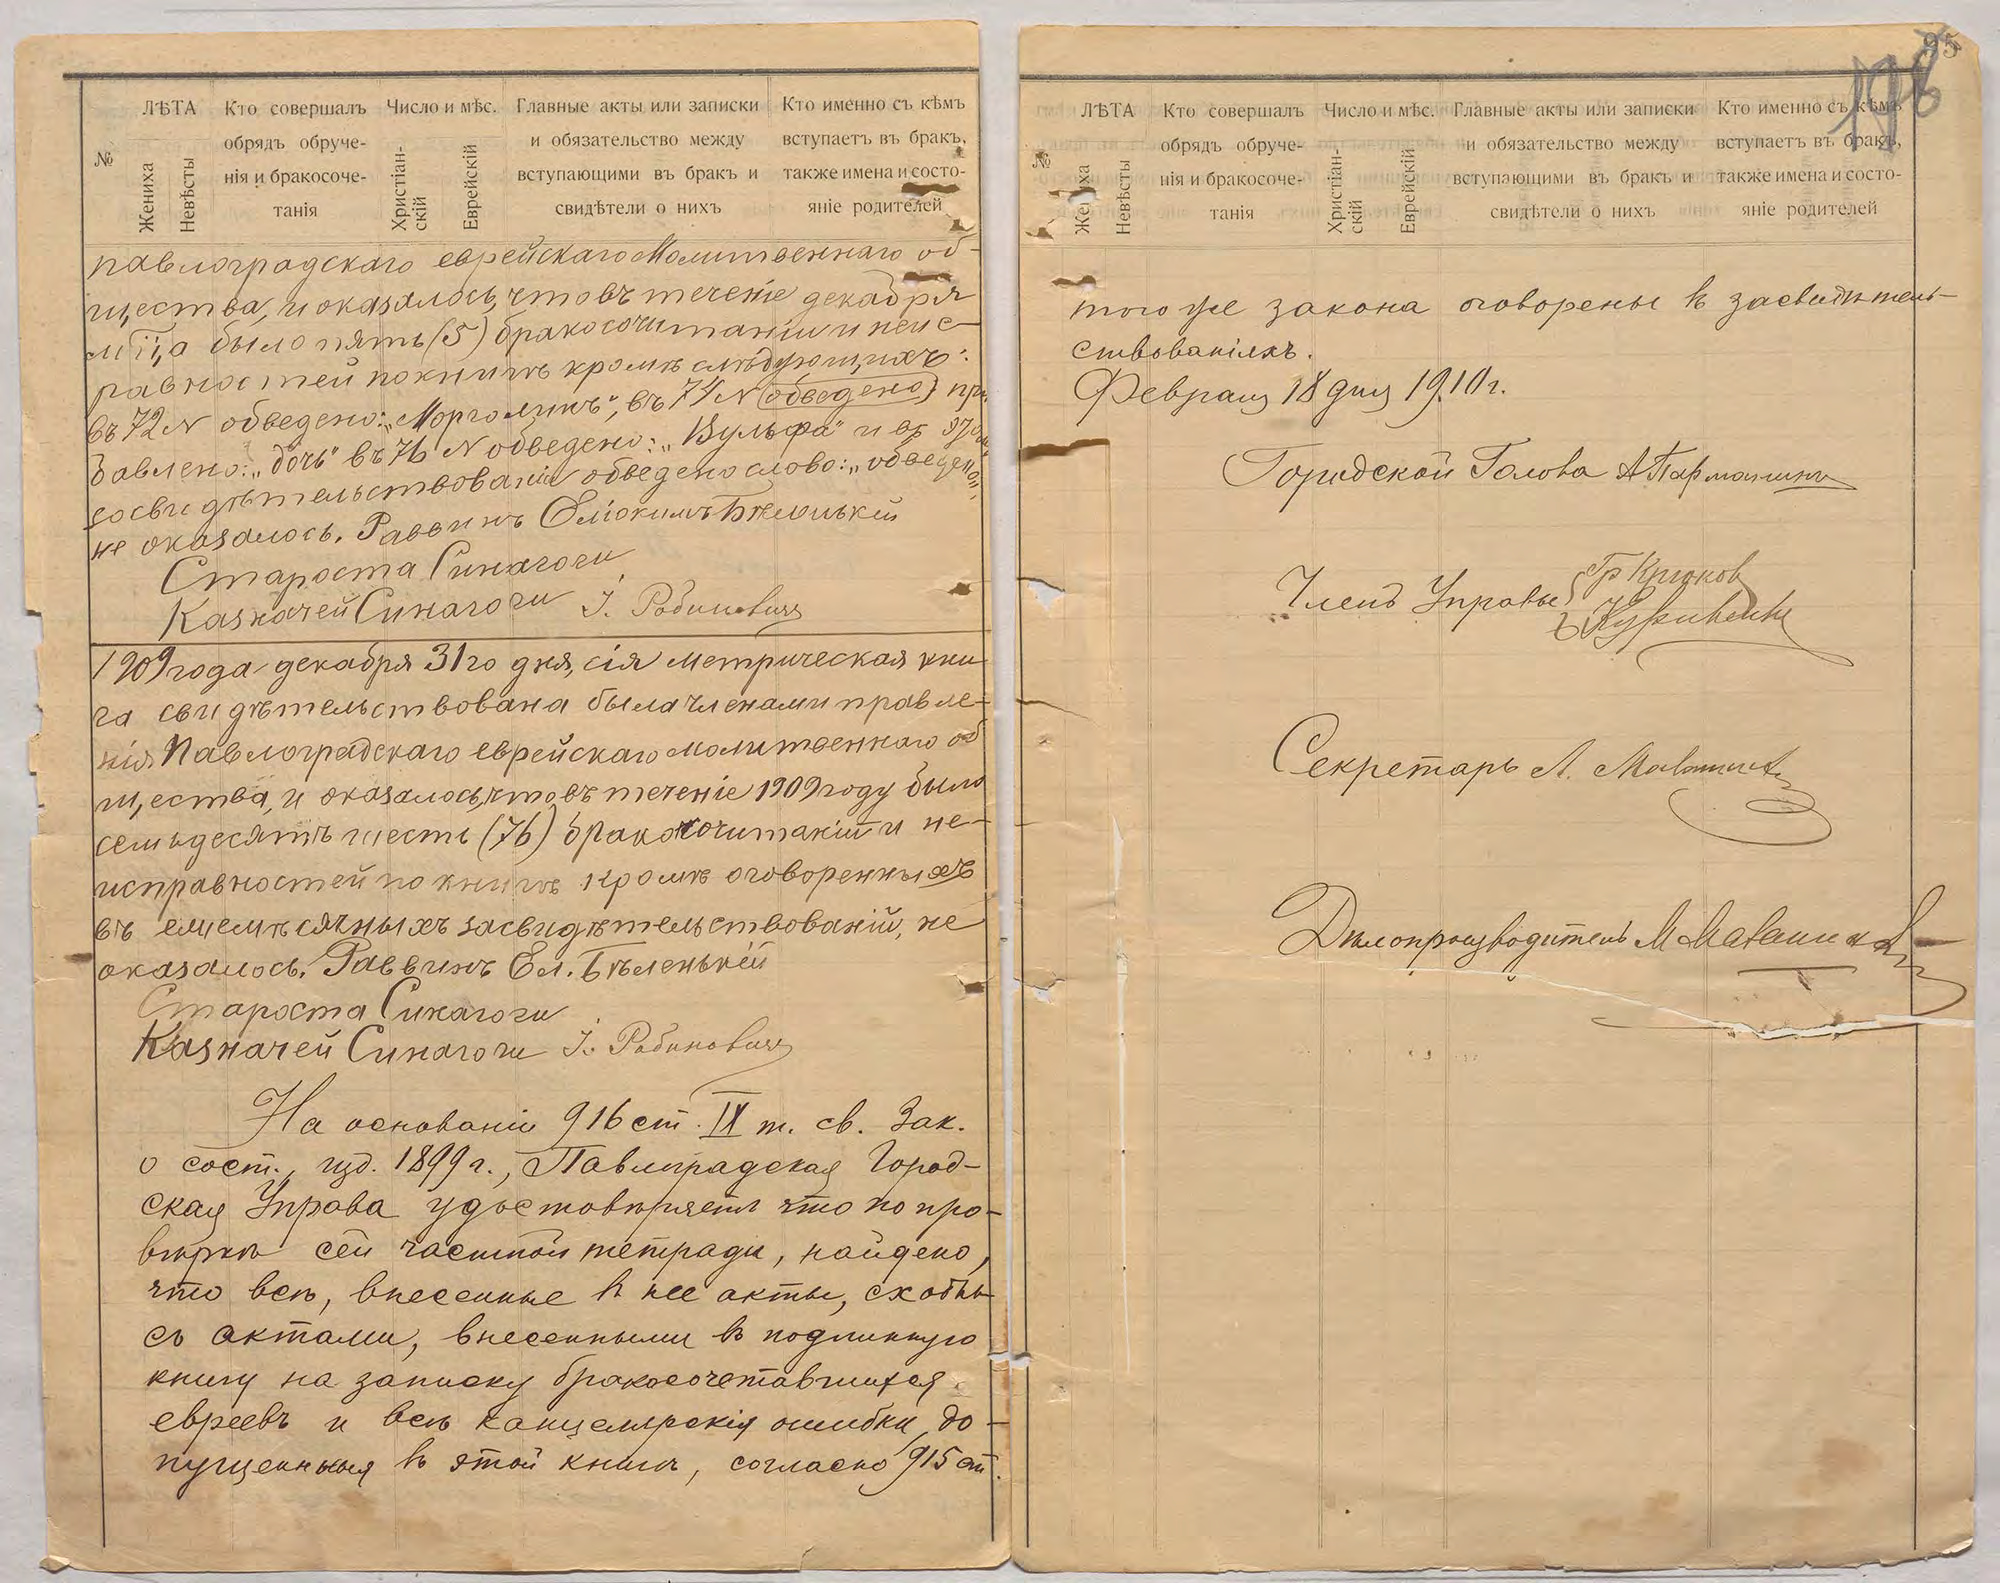 №
ЛѢТА
Жениха
Невѣсты
Кто совершалъ
обрядъ обруче-
нія и бракосоче-
танія
Число и мѣс.
Христіан-
скій
Еврейскій
Главные акты или записки
и обязательство между
вступающими въ бракъ и
свидѣтели о нихъ
Кто именно съ кѣмъ
вступаетъ въ бракъ,
также имена и состо-
яніе родителей
павлоградскаго еврейскаго Молитвеннаго об-
щества, и оказалось, что въ теченіе декабря
м-ца было пять (5) бракосочитаній и неис-
равностей по книгѣ кромѣ слѣдующихъ:
въ 72 N обведено: „Морголинъ", въ 74 N (обведено) при
бавлено: „дочь" въ 76 N обведено: „Вульфа" и въ этом
засвидѣтельствованіи обведено слово: „обведено",
не оказалось. Раввинъ Еліокимъ Бѣленькій
Староста Синагоги
Казначей Синагоги І. Рабиновичъ
1909 года декабря 31го дня, сія метрическая кни
га свидѣтельствована была членами правле-
нія Павлоградскаго еврейскаго молитвеннаго об
щества, и оказалось, что въ теченіе 1909 году было
семьдесятъ шесть (76) бракосочитаній и не-
исправностей по книгѣ кромѣ оговоренныхъ
въ емемѣсячныхъ засвидѣтельствованій, не
оказалось. Раввинъ Ел. Бѣленькій
Староста Синагоги
Казначей Синагоги І. Рабиновичъ
На основаніи 916 ст. IX т. св. Зак.
о сост., изд. 1899 г., Павлоградская Город-
ская Управа удостовѣряетъ что по про-
вѣркѣ сей частной тетради, найдено,
что всѣ, внесенные в нее акты, сходны
съ актами, внесенными въ подлинную
книгу на записку бракосочетавшихся
евреевъ и всѣ канцелярскія ошибки до-
пущенныя в этой книгѣ, согласно 915 ст.
95
198
№
ЛѢТА
Жениха
Невѣсты
Кто совершалъ
обрядъ обруче-
нія и бракосоче-
танія
Число и мѣс.
Христіан-
скій
Еврейскій
Главные акты или записки
и обязательство между
вступающими въ бракъ и
свидѣтели о нихъ
Кто именно съ кѣмъ
вступаетъ въ бракъ,
также имена и состо-
яніе родителей
того же закона оговорены в засвидѣтель-
ствованіяхъ.
Февраля 18 дня 1910 г.
Городской Голова А
Члены Управы Гр Крюков
Секретарь А.
Дѣлопроизводитель М